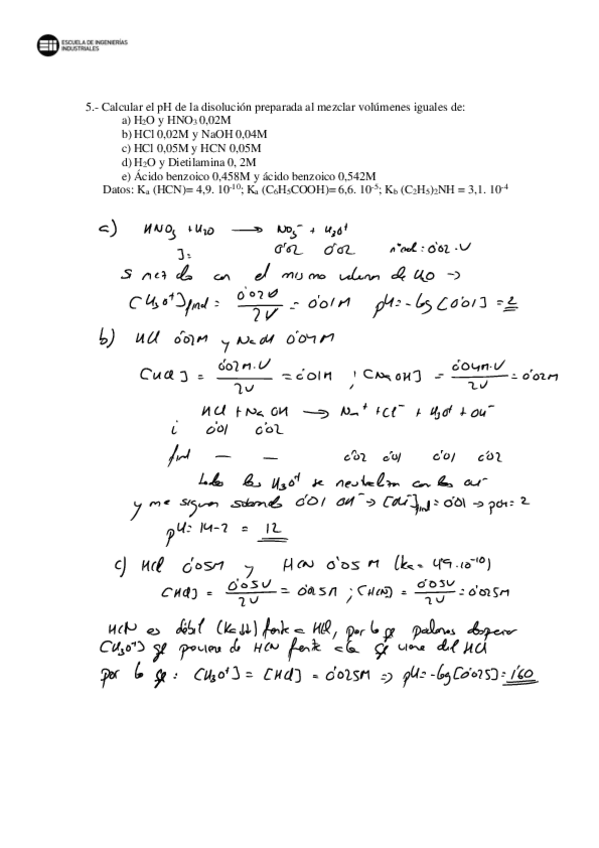 ESCUELA DE INGENIERÍAS
INDUSTRIALES
5.- Calcular el pH de la disolución preparada al mezclar volúmenes iguales de:
a) H2O y HNO3 0,02M
b) HCl 0,02M y NaOH 0,04M
c) HCl 0,05M y HCN 0,05M
d) H2O y Dietilamina 0, 2M
e) Ácido benzoico 0,458M y ácido benzoico 0,542M
Datos: Ka (HCN)= 4,9. 10-10; Ka (C6H5COOH)= 6,6. 10-5; Kb (C2H5)2NH = 3,1. 10-4
a) HNO3 + H2O → NO3- + H3O+
0'02 0'02 nºmol: 0'02·V
Si mezclo con el mismo volumen de H2O →
[H3O+]final = 0'02V / 2V = 0'01M pH = -log[0'01] = 2
b) HCl 0'02M y NaOH 0'04M
[HCl] = 0'02M·V / 2V = 0'01M ; [NaOH] = 0'04M·V / 2V = 0'02M
HCl + NaOH → Na+ + Cl- + H3O+ + OH-
i 0'01 0'02
final — — 0'02 0'01 0'01 0'02
todos los H3O+ se neutralizan con los OH-
y me siguen sobrando 0'01 OH- → [OH-]final = 0'01 → pOH = 2
pH = 14-2 = 12
c) HCl 0'05M y HCN 0'05M (Ka = 4'9·10-10)
[HCl] = 0'05V / 2V = 0'025M ; [HCN] = 0'05V / 2V = 0'025M
HCN es débil (Ka↓↓) frente a HCl, por lo que podemos despreciar
[H3O+] que proviene de HCN frente a la que viene del HCl
por lo que: [H3O+] = [HCl] = 0'025M ⇒ pH = -log[0'025] = 1'60